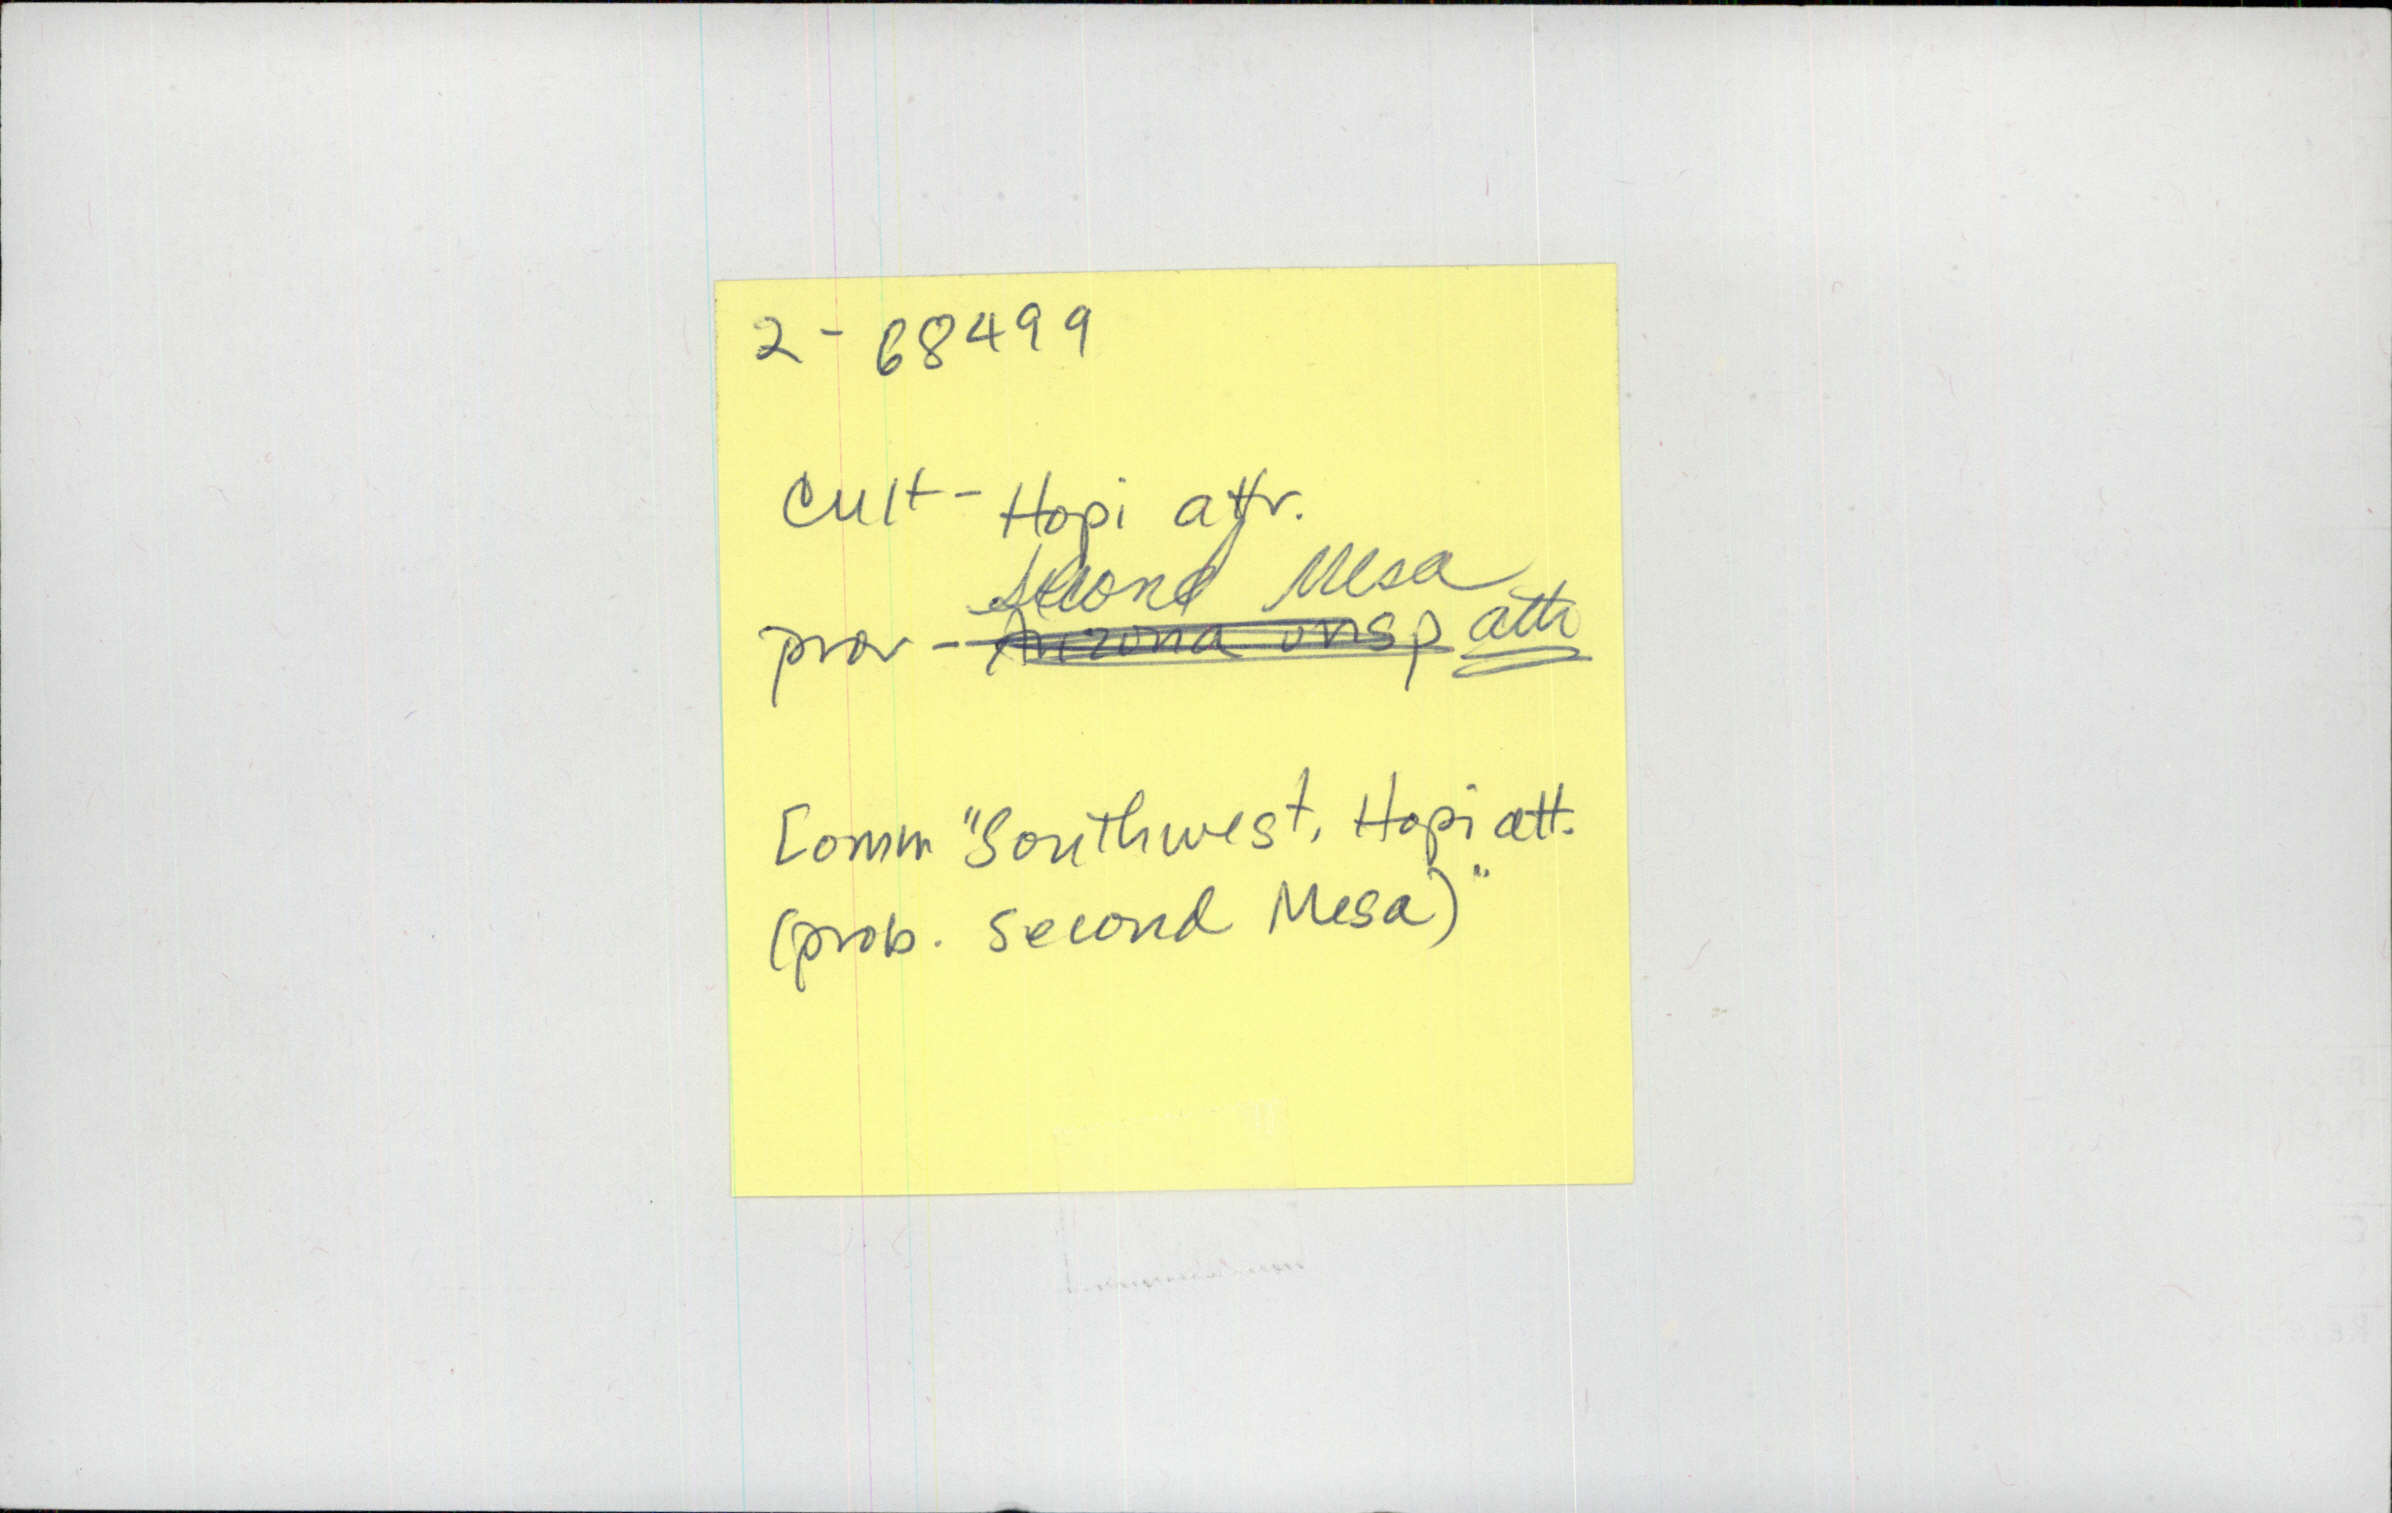 2-68499
Cult- Hopi attr.
Second Mesa
prov - Arizona unsp attr
Comm "Southwest, Hopi att.
(prob. Second Mesa)"